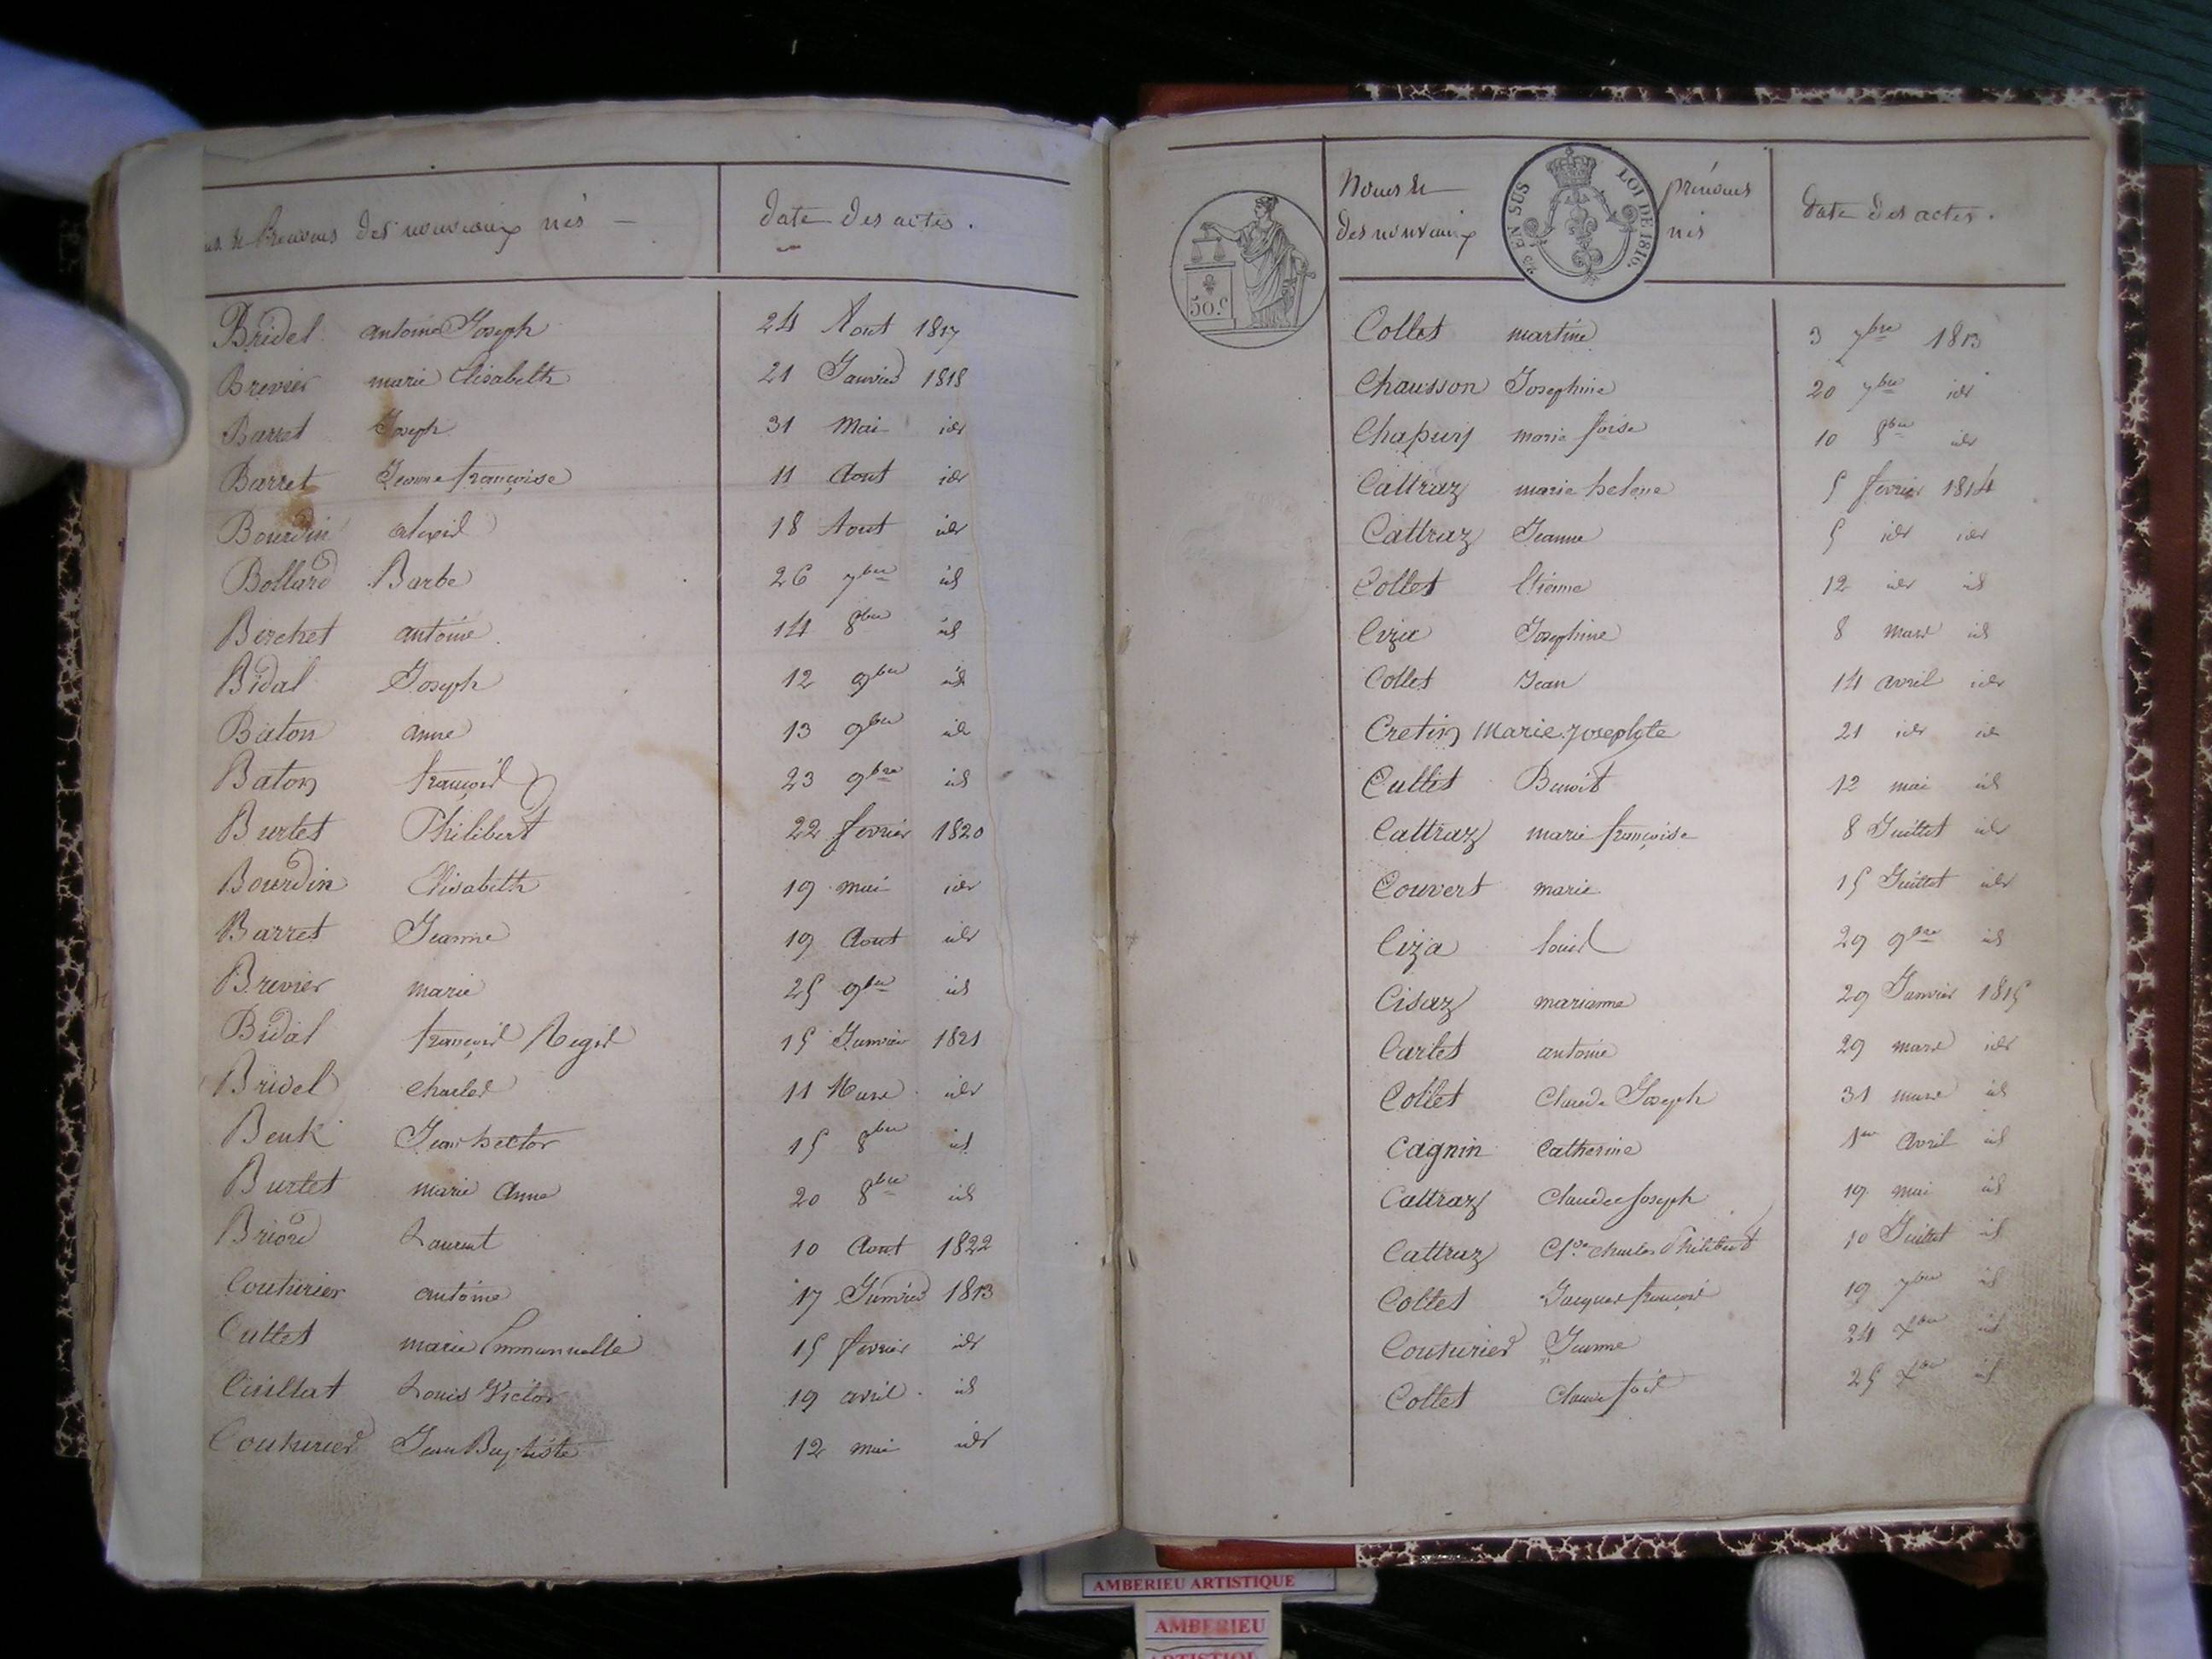 de Prenoms des nouveaux nés — date des actes.
Bridel antoine Joseph 24 Aout 1817
Brevier marie Elisabeth 21 Janvier 1818
Barret Joseph 31 Mai idr
Barret Jeanne françoise 11 Aout idr
Bourdin alexis 18 Aout idr
Bollard Barbe 26 7bre id
Berchet antoine 14 8bre id
Bidal Joseph 12 9bre id
Baton anne 13 9bre id
Baton françois 23 9bre id
Burtet Philibert 22 fevrier 1820
Bourdin Elisabeth 19 mai idr
Barret Jeanne 19 Aout idr
Brevier marie 25 9bre id
Bidal françois Regis 15 Janvier 1821
Bridel charles 11 Mars idr
Benk Jean hector 15 8bre id
Burtet marie Anne 20 8bre id
Briord Laurent 10 Aout 1822
Couturier antoine 17 Janvier 1813
Cullet marie Emmanuelle 15 fevrier idr
Louis Victor 19 avril id
Couturier Jean Baptiste 12 mai idr
50 c.
Noms & prénoms
des nouveaux nés
EN SUS LOI DE 1816.
date des actes.
Collet martine 3 7bre 1813
Chausson Josephine 20 7bre idr
Chapuy marie foise 10 8bre idr
Cattraz marie helene 5 fevrier 1814
Cattraz Jeanne 5 idr idr
Collet Etienne 12 idr id
Ciza Josephine 8 mars id
Collet Jean 14 avril idr
Cretin Marie Josephte 21 idr id
Cullet Benoit 12 mai id
Cattraz marie françoise 8 Juillet idr
Couvert marie 15 Juillet idr
Ciza louis 29 9bre id
Cisaz marianne 29 Janvier 1815
Carlet antoine 29 mars idr
Collet Claude Joseph 31 mars id
Cagnin Catherine 1er Avril id
Cattraz Claude Joseph 19 mai id
Cattraz charles Philibert 10 Juillet id
Collet Jacques françois 19 7bre id
Couturier Jeanne 24 Xbre id
Collet Claude fois 25 Xbre id
AMBERIEU ARTISTIQUE
AMBERIEU
ARTISTIQUE